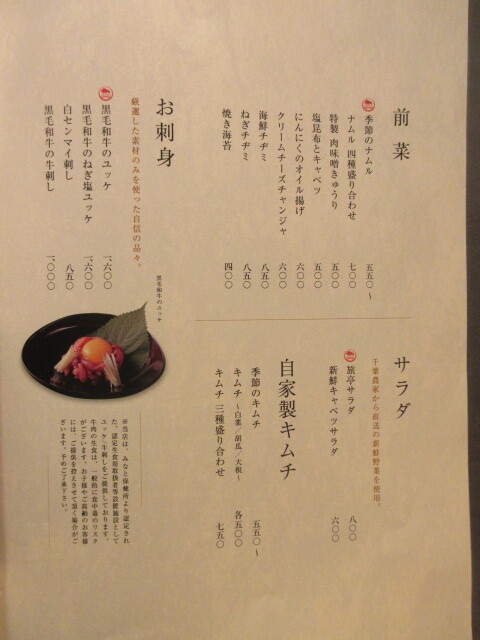 前菜
季節のナムル 五五〇～
ナムル 四種盛り合わせ 七〇〇
特製 肉味噌きゅうり 五〇〇
塩昆布とキャベツ 五〇〇
にんにくのオイル揚げ 六〇〇
クリームチーズチャンジャ 六〇〇
海鮮チヂミ 八五〇
ねぎチヂミ 八五〇
焼き海苔 四〇〇
お刺身
厳選した素材のみを使った自信の品々。
黒毛和牛のユッケ 一、六〇〇
黒毛和牛のねぎ塩ユッケ 一、六〇〇
白センマイ刺し 八五〇
黒毛和牛の牛刺し 一、〇〇〇
黒毛和牛のユッケ
サラダ
千葉農家から直送の新鮮野菜を使用。
旅亭サラダ 八〇〇
新鮮キャベツサラダ 六〇〇
自家製キムチ
季節のキムチ 五五〇～
キムチ ～白菜／胡瓜／大根～ 各五〇〇
キムチ 三種盛り合わせ 七五〇
※当店は、みなと保健所より認定され
た、認定生食用取扱者等設置施設として
ユッケ、牛刺しをご提供しております。
牛肉の生食は、一般的に食中毒のリスク
がございます。お子様やご高齢のお客様
には、ご提供を控えさせて頂く場合がご
ざいます。予めご了承下さい。